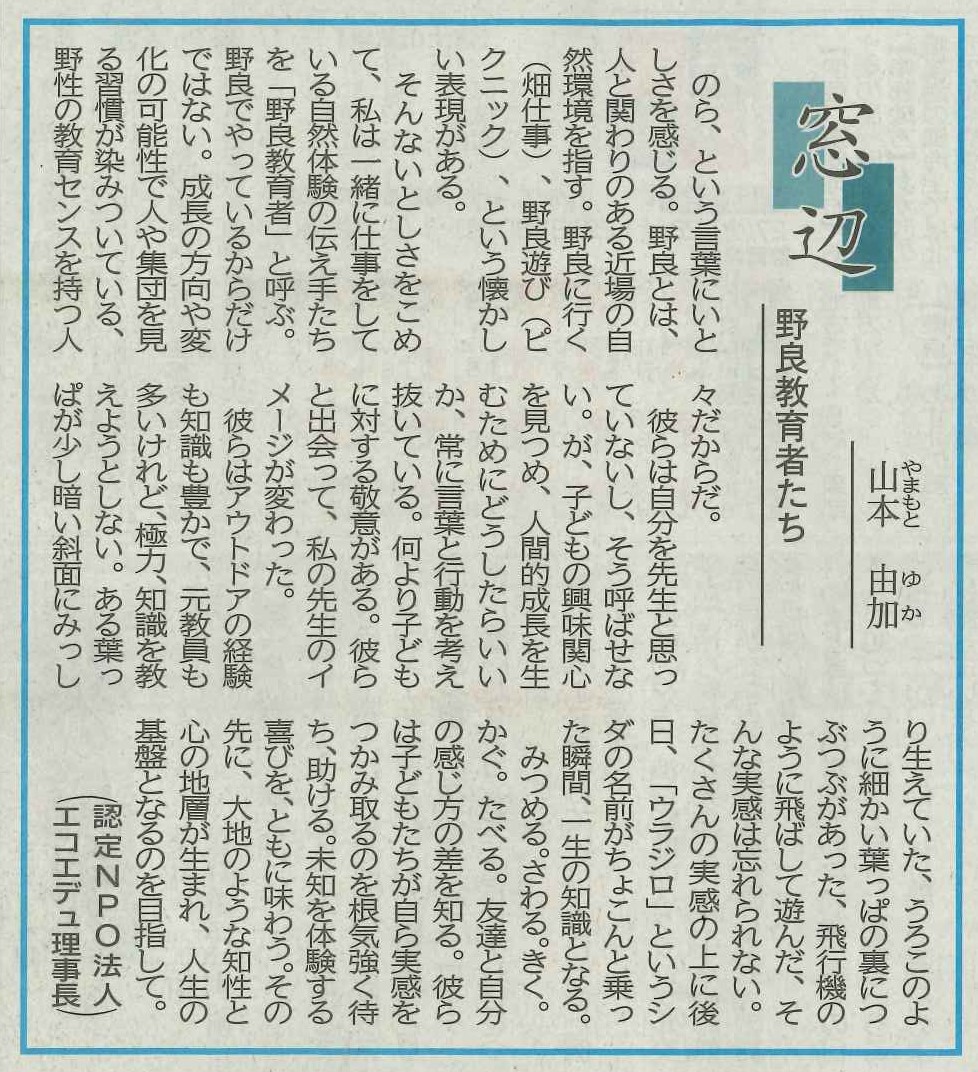 窓辺
野良教育者たち
山本　由加
やまもと　ゆか
のら、という言葉にいと
しさを感じる。野良とは、
人と関わりのある近場の自
然環境を指す。野良に行く
（畑仕事）、野良遊び（ピ
クニック）、という懐かし
い表現がある。
そんないとしさをこめ
て、私は一緒に仕事をして
いる自然体験の伝え手たち
を「野良教育者」と呼ぶ。
野良でやっているからだけ
ではない。成長の方向や変
化の可能性で人や集団を見
る習慣が染みついている、
野性の教育センスを持つ人
々だからだ。
彼らは自分を先生と思っ
ていないし、そう呼ばせな
い。が、子どもの興味関心
を見つめ、人間的成長を生
むためにどうしたらいい
か、常に言葉と行動を考え
抜いている。何より子ども
に対する敬意がある。彼ら
と出会って、私の先生のイ
メージが変わった。
彼らはアウトドアの経験
も知識も豊かで、元教員も
多いけれど、極力、知識を教
えようとしない。ある葉っ
ぱが少し暗い斜面にみっし
り生えていた、うろこのよ
うに細かい葉っぱの裏につ
ぶつぶがあった、飛行機の
ように飛ばして遊んだ、そ
んな実感は忘れられない。
たくさんの実感の上に後
日、「ウラジロ」というシ
ダの名前がちょこんと乗っ
た瞬間、一生の知識となる。
みつめる。さわる。きく。
かぐ。たべる。友達と自分
の感じ方の差を知る。彼ら
は子どもたちが自ら実感を
つかみ取るのを根気強く待
ち、助ける。未知を体験する
喜びを、ともに味わう。その
先に、大地のような知性と
心の地層が生まれ、人生の
基盤となるのを目指して。
（認定ＮＰＯ法人
エコエデュ理事長）